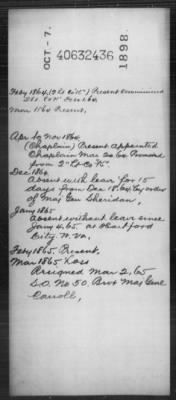 OCT. - 7.
40632436
1898.
Feby 1864, Present
Mar 1864 Present.
Apr to Nov 1864
(Chaplain) Present appointed
Chaplain Mar 20. 64. Promoted
from 2" Lt Co "K".
Dec 1864.
Absent with leave for 15
days from Dec 18. 64, by order
of Maj Gen Sheridan,
Jany 1865
Absent without leave since
Jany 4. 65. at Hartford
City W. Va,
Feby 1865. Present,
Mar 1865 Loss
Resigned Mar 2, 65
S.O. No 50, Brvt Maj Genl
Carroll,